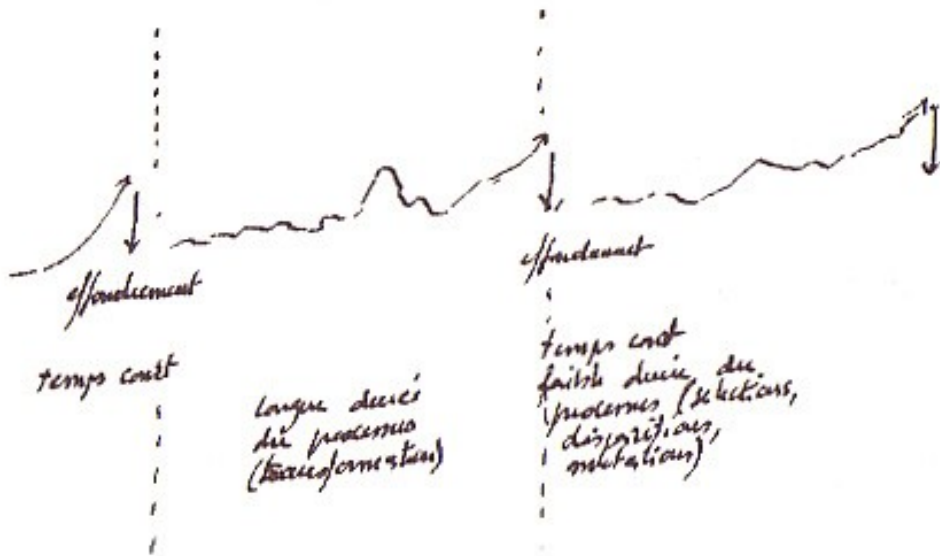 effondrement
effondrement
temps court
longue durée
du processus
(transformation)
temps court
faible durée du
processus (sélections,
disparitions,
mutations)